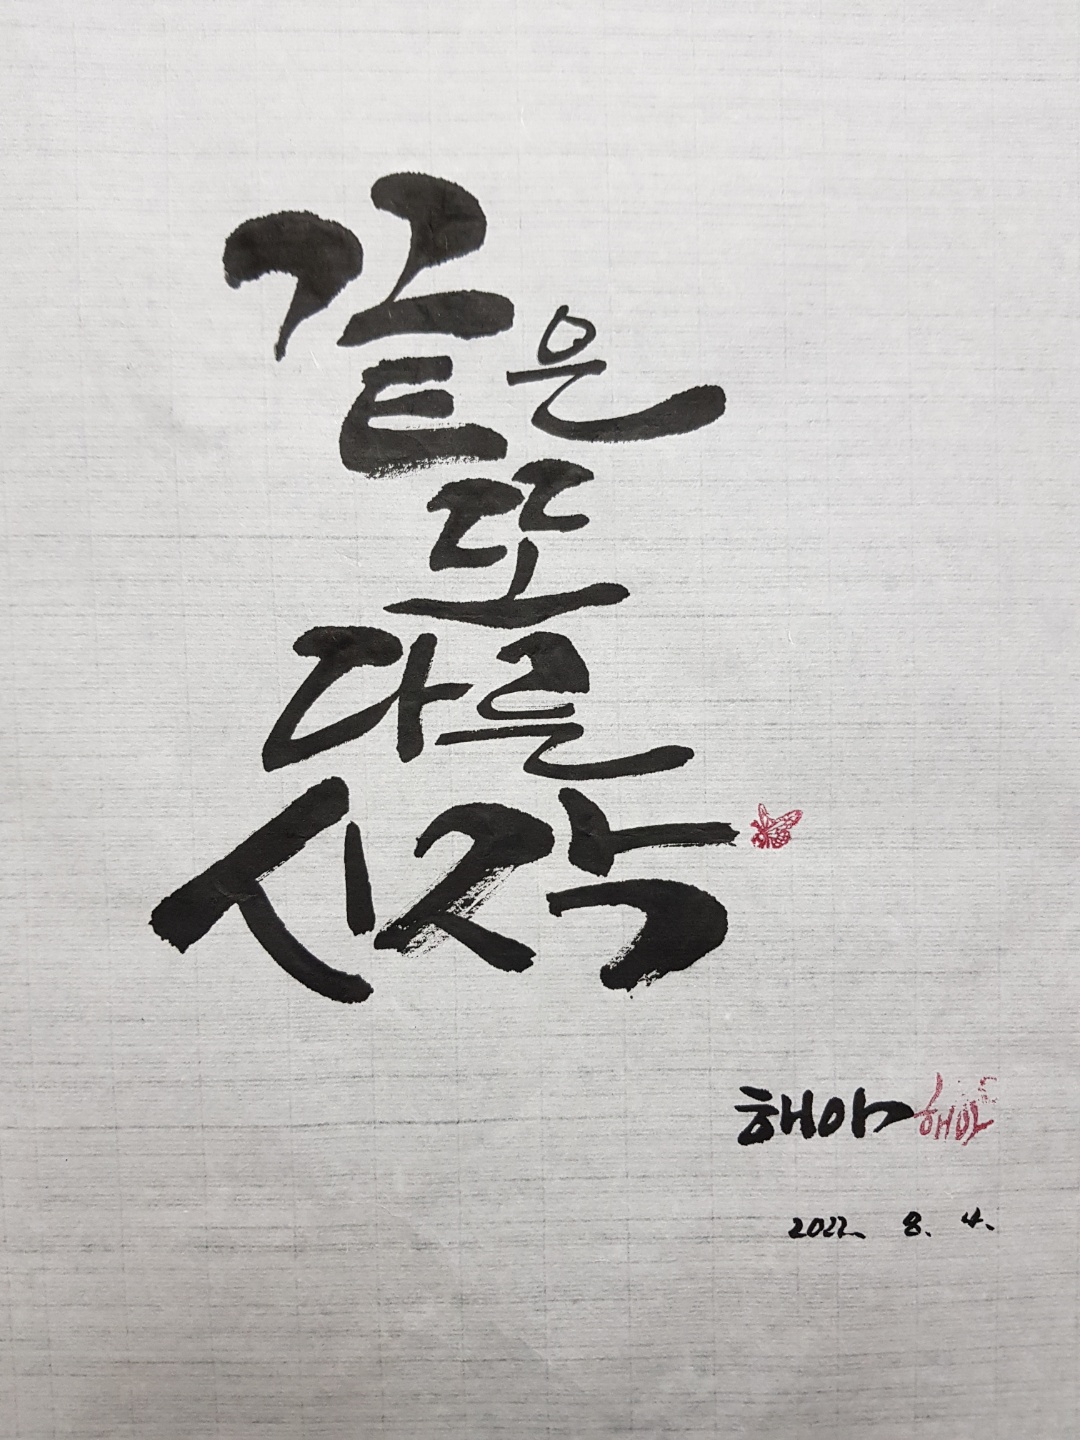 끝은
또
다른
시작
해야 해야
2022. 8. 4.